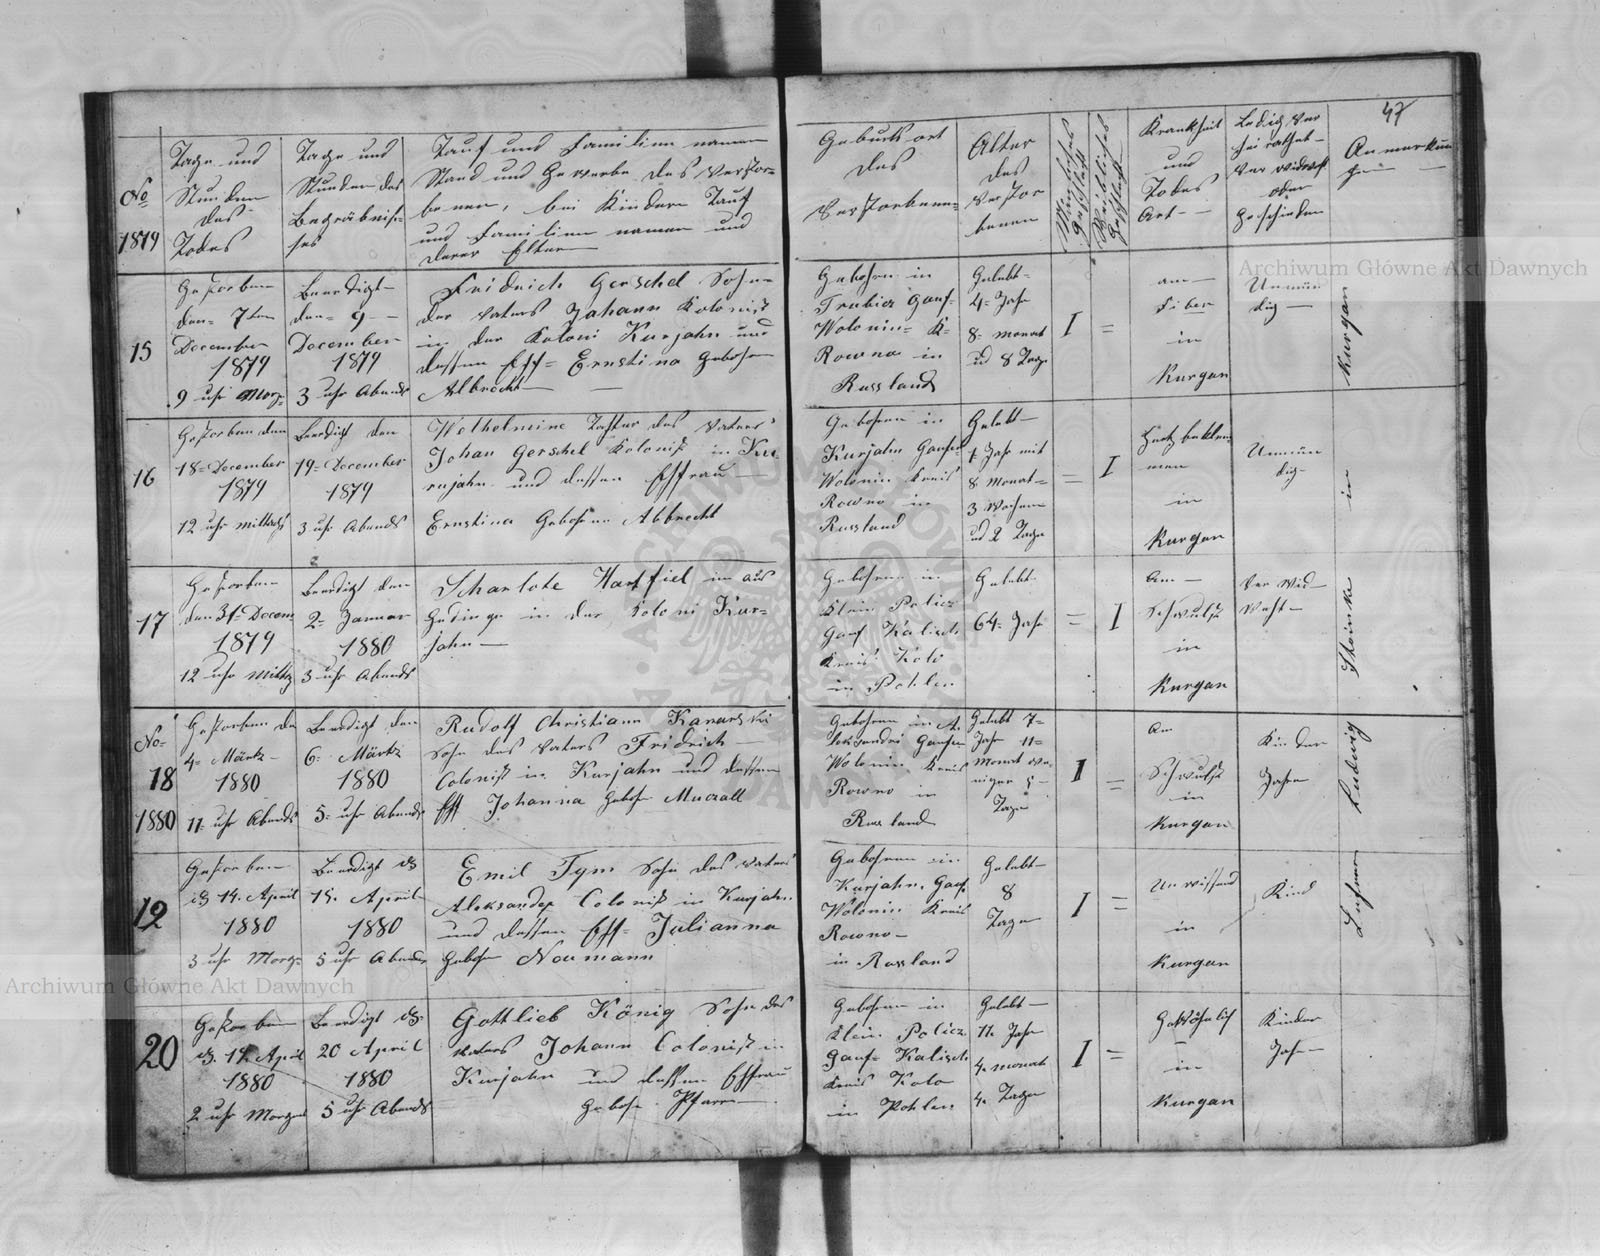 47
No
1879
Tage und
Stunden
des
Todes
Tage und
Stunden des
Begräbnis-
ses
Tauf und Familien namen
Stand und Gewerbe des Verstor-
benen, bei Kindern Tauf
und Familien namen und
derer Eltern
Geburts ort
des
Verstorbenen
Alter
des
Verstor
benen
Männliches
Geschlecht
Weibliches
Geschlecht
Krankheit
und
Todes
Art
Ledig Ver
heirathet
Verwidwet
oder
geschieden
Anmerkun
gen
15
Gestorben
den 7ten
December
1879
9 uhr Morg=
Beerdigt
den 9
December
1879
3 uhr Abends
Fridrich Gerschel Sohn
der Vaters Johann Kolonist
in der Koloni Kurjahn und
dessen Eff= Ernstina Gebohren
Albrecht
Gebohren in
Trubica Gouf=
Wolonin= K=
Rowno in
Russland
Gelebt
4= Jahr
8= monat
ud 8 Tage
I
=
am
Fiber
in
Kurgan
Unmün
dig
16
Gestorben den
18= December
1879
12 uhr mittags
Beerdigt den
19= December
1879
3 uhr Abends
Welhelmine Tochter des Vaters
Johan Gerschel Kolonist in Ku
rujahn und dessen Effrau
Ernstina Gebohren Albrecht
Gebohren in
Kurjahn Goufer
Wolonin Kreis
Rowno in
Russland
Gelebt
1 Jahr mit
8 Monat=
3 Wochen
ud 2 Tage
=
I
Hertzbeklem
men
in
Kurgan
Unmün
dig
17
Gestorben
den 31= Decem
1879
12 uhr Mittg
Beerdigt den
2= Januar
1880
3 uhr Abends
Scharlote Hartfiel im aus
Gedinge in der Koloni Kur=
jahn
Gebohren in
Klein Police
Gouf Kalisch
Kreis Kolo
in Pohlen
Gelebt
64= Jahr
=
I
Am
Schwulst
in
Kurgan
Verwid
weht
No=
18
1880
Gestorben de
4= Märtz
1880
11= uhr Abends
Beerdigt den
6= Märtz
1880
5= uhr Abends
Rudolf Christiann Kanarski
Sohn des Vaters Fridrich
Colonist in Kurjahn und dessen
Eff Johanna Gebohr Muczall
Gebohren in A.
leksandri Goufer
Wolonin Kreis
Rowno in
Russland
Gelebt 7=
Jahr 11=
Monat we
niger 8
Tage
I
=
Am
Schwulst
in
Kurgan
Kinder
Jahre
12
Gestorben
d 14. April
1880
3 uhr Morg=
Beerdigt d
15. April
1880
5 uhr Abends
Emil Tym Sohn des Vaters
Aleksander Colonist in Kurjahn
und dessen Eff= Julianna
Gebohr Neumann
Gebohren in
Kurjahn Gouf
Wolonin Kreis
Rowno
in Russland
Gelebt
8
Tage
I
=
Unwissend
in
Kurgan
Kind
20
Gestorben
d. 17. April
1880
2 uhr Morgens
Beerdigt d.
20 April
1880
5 uhr Abends
Gottlieb König Sohn des
Vaters Johann Colonist in
Kurjahn und dessen Effrau
Gebohr Pfarr
Gebohren in
Klein Police
Gouf= Kalisch
Kreis Kolo
in Pohlen
Gelebt
11. Jahr
4. monat
4. Tage
I
=
Gewöhnlich
in
Kurgan
Kinder
Jahr
Lehrer Ludwig Steinke in Kurgan
Archiwum Główne Akt Dawnych
Archiwum Główne Akt Dawnych